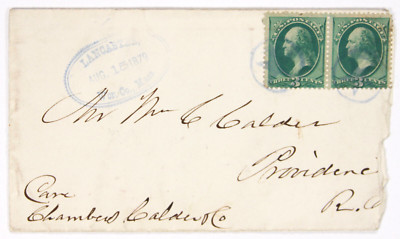 LANCASTER
AUG. 15 1879
Mass.
U.S. POSTAGE
U.S. POSTAGE
THREE CENTS
THREE CENTS
Mr Wm C Calder
Providence
R.I.
Care
Chambers Calder & Co